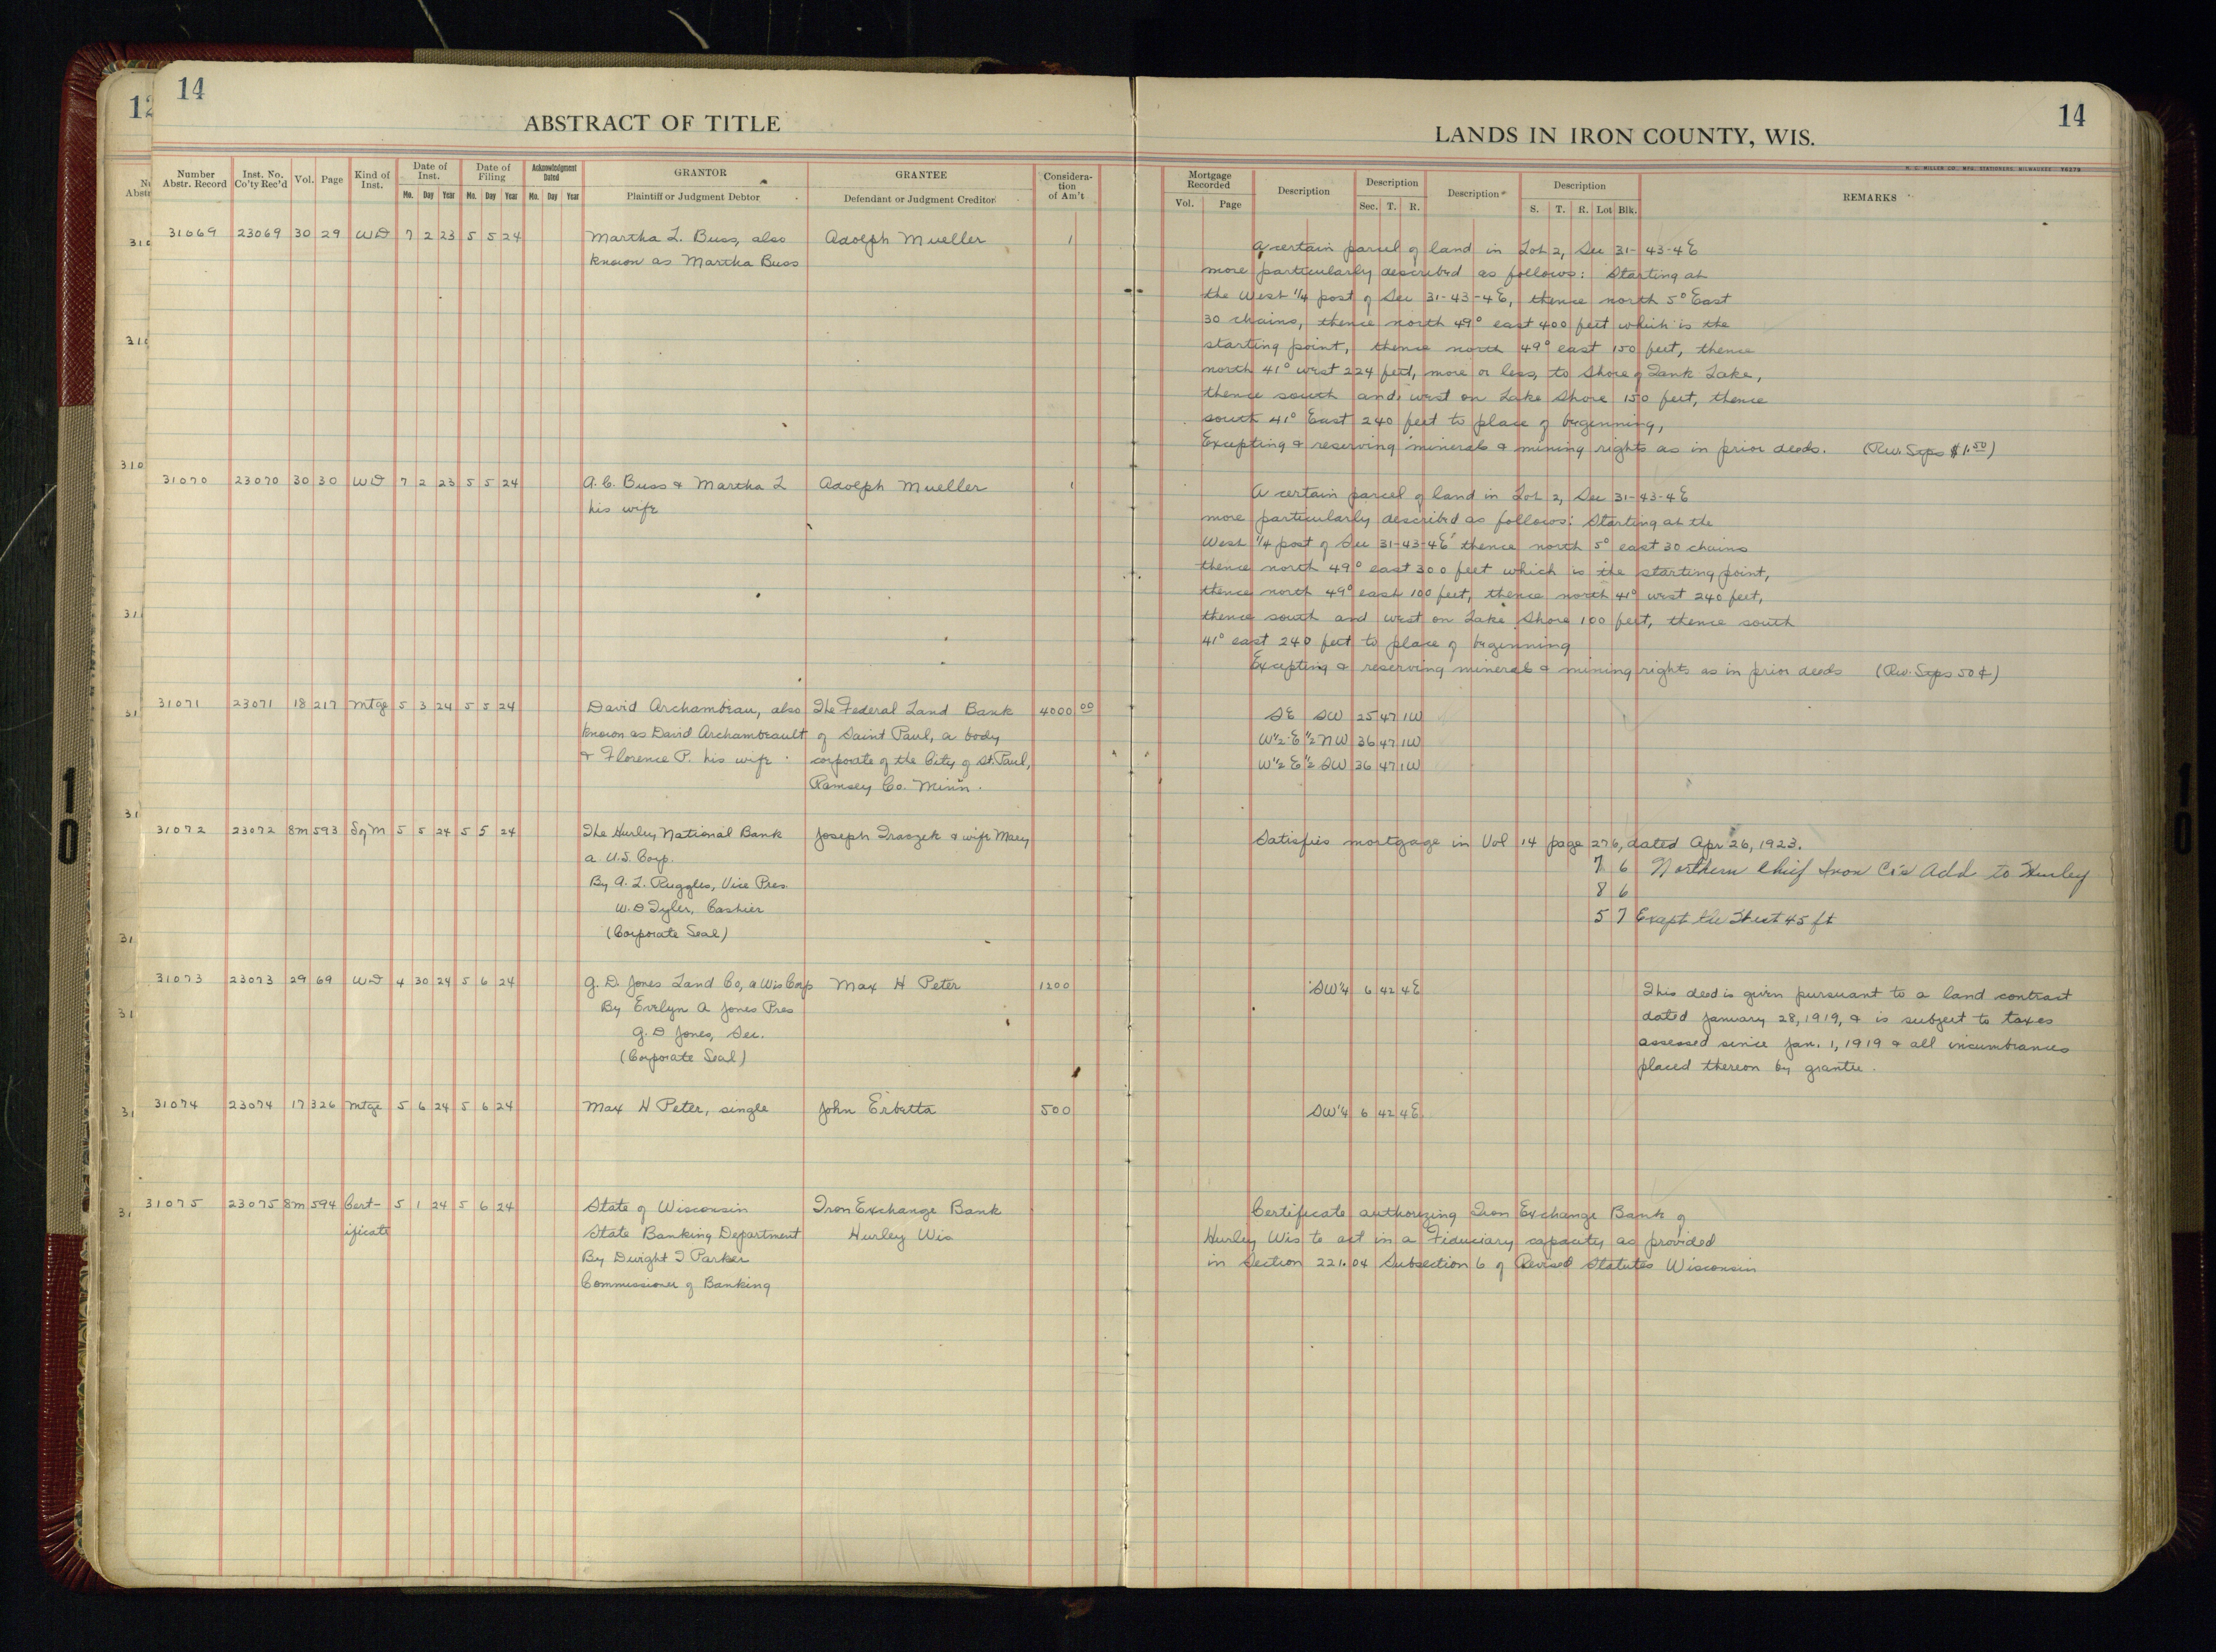 12
14
ABSTRACT OF TITLE
LANDS IN IRON COUNTY, WIS.
14
Number Abstr. Record Inst. No. Co'ty Rec'd Vol. Page Kind of Inst. Date of Inst. Mo. Day Year Date of Filing Mo. Day Year Acknowledgment Dated Mo. Day Year GRANTOR Plaintiff or Judgment Debtor GRANTEE Defendant or Judgment Creditor Consideration of Am't
Mortgage Recorded Vol. Page Description Description Sec. T. R. Description Description S. T. R. Lot Blk. REMARKS
31069 23069 30 29 WD 7 2 23 5 5 24 Martha L. Buss, also Adolph Mueller 1
known as Martha Buss
A certain parcel of land in Lot 2, Sec 31-43-4E
more particularly described as follows: Starting at
the West 1/4 post of Sec 31-43-4E, thence north 5° East
30 chains, thence north 49° east 400 feet which is the
starting point, thence north 49° east 150 feet, thence
north 41° west 224 feet, more or less, to Shore of Tank Lake,
thence south and west on Lake Shore 150 feet, thence
south 41° East 240 feet to place of beginning,
Excepting & reserving minerals & mining rights as in prior deeds. (Rev. Stps $1.50)
31070 23070 30 30 WD 7 2 23 5 5 24 A. C. Buss & Martha L Adolph Mueller 1
his wife
A certain parcel of land in Lot 2, Sec 31-43-4E
more particularly described as follows: Starting at the
West 1/4 post of Sec 31-43-4E thence north 5° east 30 chains
thence north 49° east 300 feet which is the starting point,
thence north 49° east 100 feet, thence north 41° west 240 feet,
thence south and west on Lake Shore 100 feet, thence south
41° east 240 feet to place of beginning
Excepting & reserving minerals & mining rights as in prior deeds (Rev. Stps 50¢)
31071 23071 18 217 Mtge 5 3 24 5 5 24 David Archambeau, also The Federal Land Bank 4000 00 SE SW 25 47 1W
known as David Archambeault of Saint Paul, a body W 1/2 E 1/2 NW 36 47 1W
& Florence P. his wife corporate of the City of St. Paul, W 1/2 E 1/2 SW 36 47 1W
Ramsey Co. Minn.
31072 23072 8M 593 SqM 5 5 24 5 5 24 The Hurley National Bank Joseph Traczek & wife Mary Satisfies mortgage in Vol 14 page 276, dated Apr 26, 1923.
a U.S. Corp. 7 6 Northern Chief Iron Co's Add to Hurley
By A. L. Ruggles, Vice Pres. 8 6
W. D Tyler, Cashier 5 7 Except the West 45 ft
(Corporate Seal)
31073 23073 29 69 WD 4 30 24 5 6 24 G. D. Jones Land Co, a Wis Corp Max H Peter 1200 SW 1/4 6 42 4E This deed is given pursuant to a land contract
By Evelyn A Jones Pres dated January 28, 1919, & is subject to taxes
G. D Jones, Sec. assessed since Jan. 1, 1919 & all incumbrances
(Corporate Seal) placed thereon by grantee.
31074 23074 17 326 Mtge 5 6 24 5 6 24 Max H Peter, single John Erbetta 500 SW 1/4 6 42 4E
31075 23075 8M 594 Cert- 5 1 24 5 6 24 State of Wisconsin Iron Exchange Bank Certificate authorizing Iron Exchange Bank of
ificate State Banking Department Hurley Wis Hurley Wis to act in a Fiduciary capacity as provided
By Dwight T Parker in Section 221.04 Subsection 6 of Revised Statutes Wisconsin
Commissioner of Banking
10
10